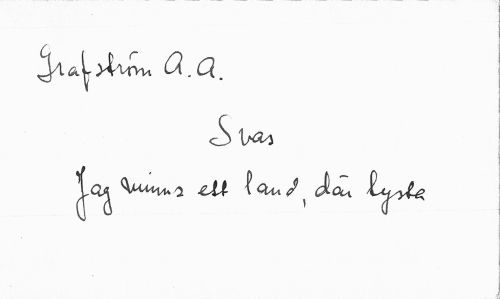 Grafström A. A.
Svar
Jag minns ett land, där tysta